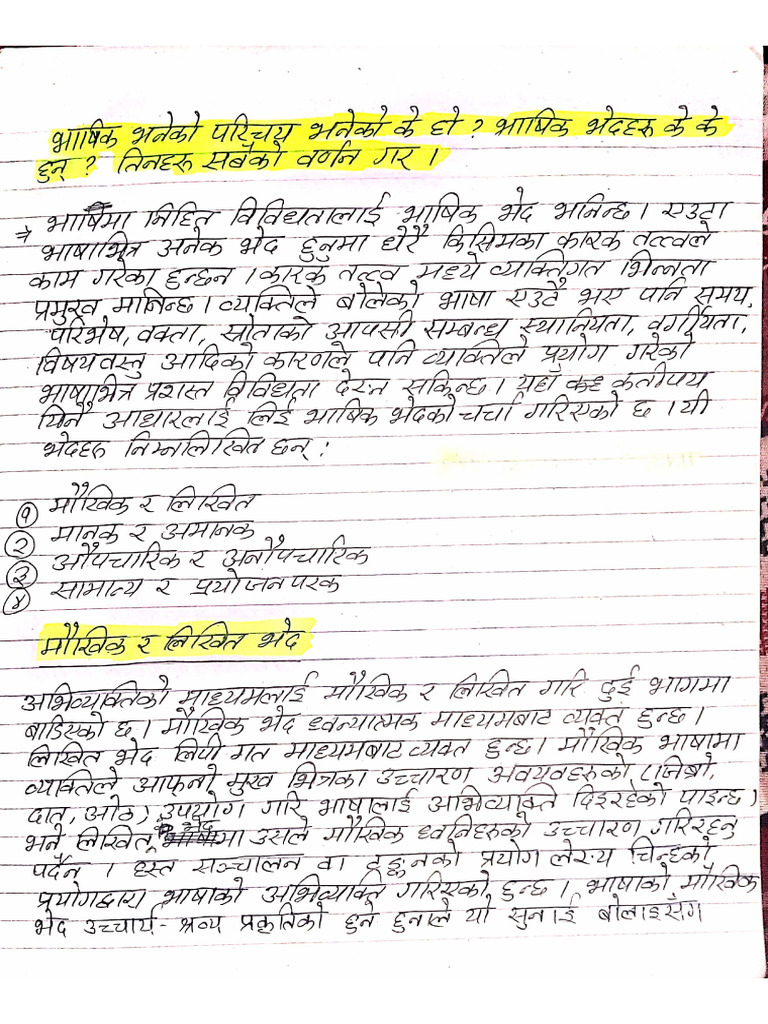 भाषिक भनेको परिचय भनेको के हो ? भाषिक भेदहरू के के
हुन् ? तिनहरू सबैको वर्णन गर ।
⇒ भाषामा निहित विविधतालाई भाषिक भेद भनिन्छ । एउटा
भाषाभित्र अनेक भेद हुनुमा धेरै किसिमका कारक तत्त्वले
काम गरेका हुन्छन । कारक तत्त्व मध्ये व्यक्तिगत भिन्नता
प्रमुख मानिन्छ । व्यक्तिले बोलेको भाषा एउटै भए पनि समय,
परिभेष, वक्ता, स्रोताको आपसी सम्बन्ध, स्थानियता, वर्गीयता,
विषयवस्तु आदिको कारणले पनि व्यक्तिले प्रयोग गरेको
भाषाभित्र प्रशस्त विविधता देख्न सकिन्छ । यहाँ कतीपय
यिनै आधारलाई लिई भाषिक भेदको चर्चा गरिएको छ । यी
भेदहरू निम्नलिखित छन् :
१ मौखिक र लिखित
२ मानक र अमानक
३ औपचारिक र अनौपचारिक
४ सामान्य र प्रयोजनपरक
मौखिक र लिखित भेद
अभिव्यक्तिको माध्यमलाई मौखिक र लिखित गरि दुई भागमा
बाडिएको छ । मौखिक भेद ध्वन्यात्मक माध्यमबाट व्यक्त हुन्छ ।
लिखित भेद लिपी गत माध्यमबाट व्यक्त हुन्छ । मौखिक भाषामा
व्यक्तिले आफ्नो मुख भित्रका उच्चारण अवयवहरुको (जिब्रो,
दात, ओठ) उपयोग गरि भाषालाई अभिव्यक्ति दिइरहेको पाइन्छ ।
भने लिखित भेदमा उसले मौखिक ध्वनिहरुको उच्चारण गरिरहनु
पर्दैन । हस्त सञ्चालन वा टङ्कनको प्रयोग लेख्य चिन्हको
प्रयोगद्वारा भाषाको अभिव्यक्ति गरिएको हुन्छ । भाषाको मौखिक
भेद उच्चार्य - श्रव्य प्रकृतिको हुने हुनाले यो सुनाई बोलाइसँग